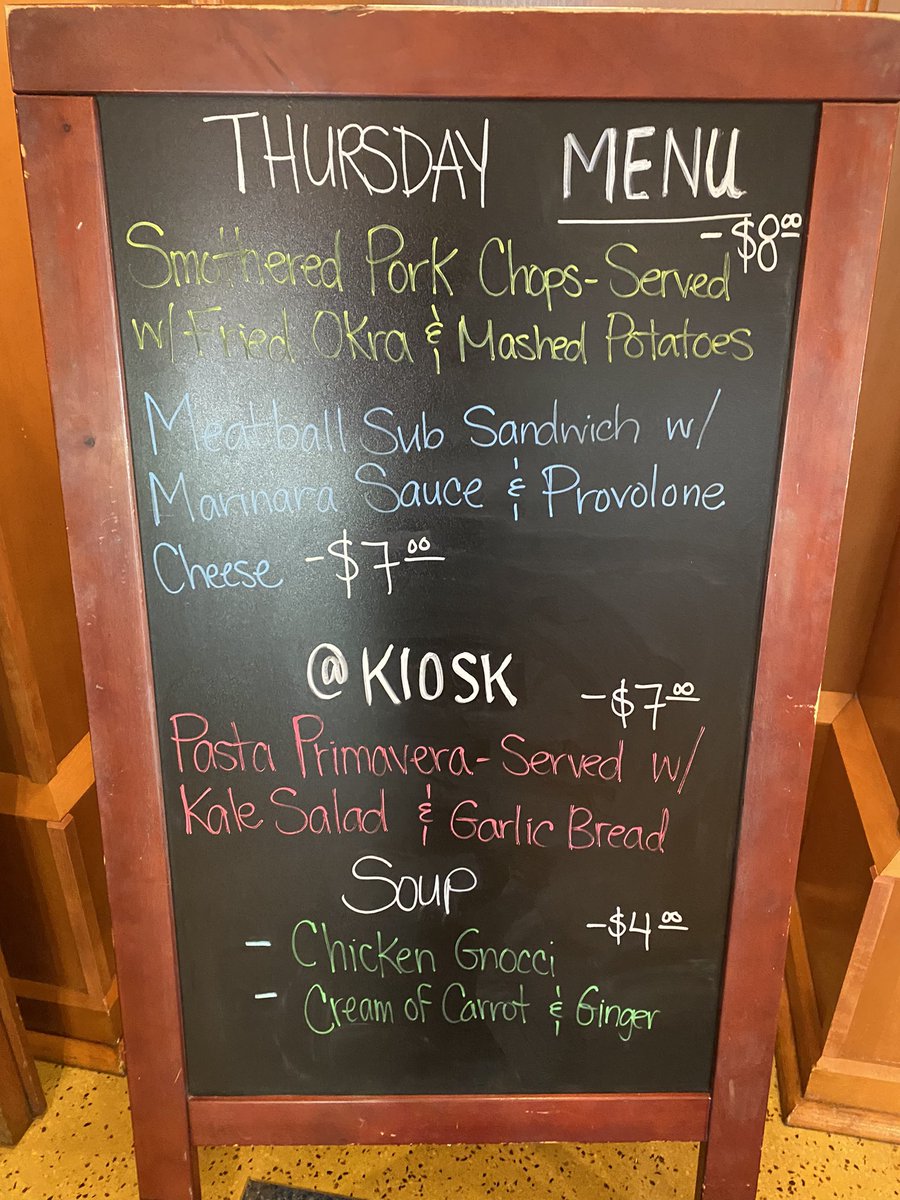 THURSDAY MENU
- $8.00
Smothered Pork Chops - Served
w/ Fried Okra & Mashed Potatoes
Meatball Sub Sandwich w/
Marinara Sauce & Provolone
Cheese - $7.00
@ KIOSK
- $7.00
Pasta Primavera - Served w/
Kale Salad & Garlic Bread
Soup
- $4.00
- Chicken Gnocci
- Cream of Carrot & Ginger